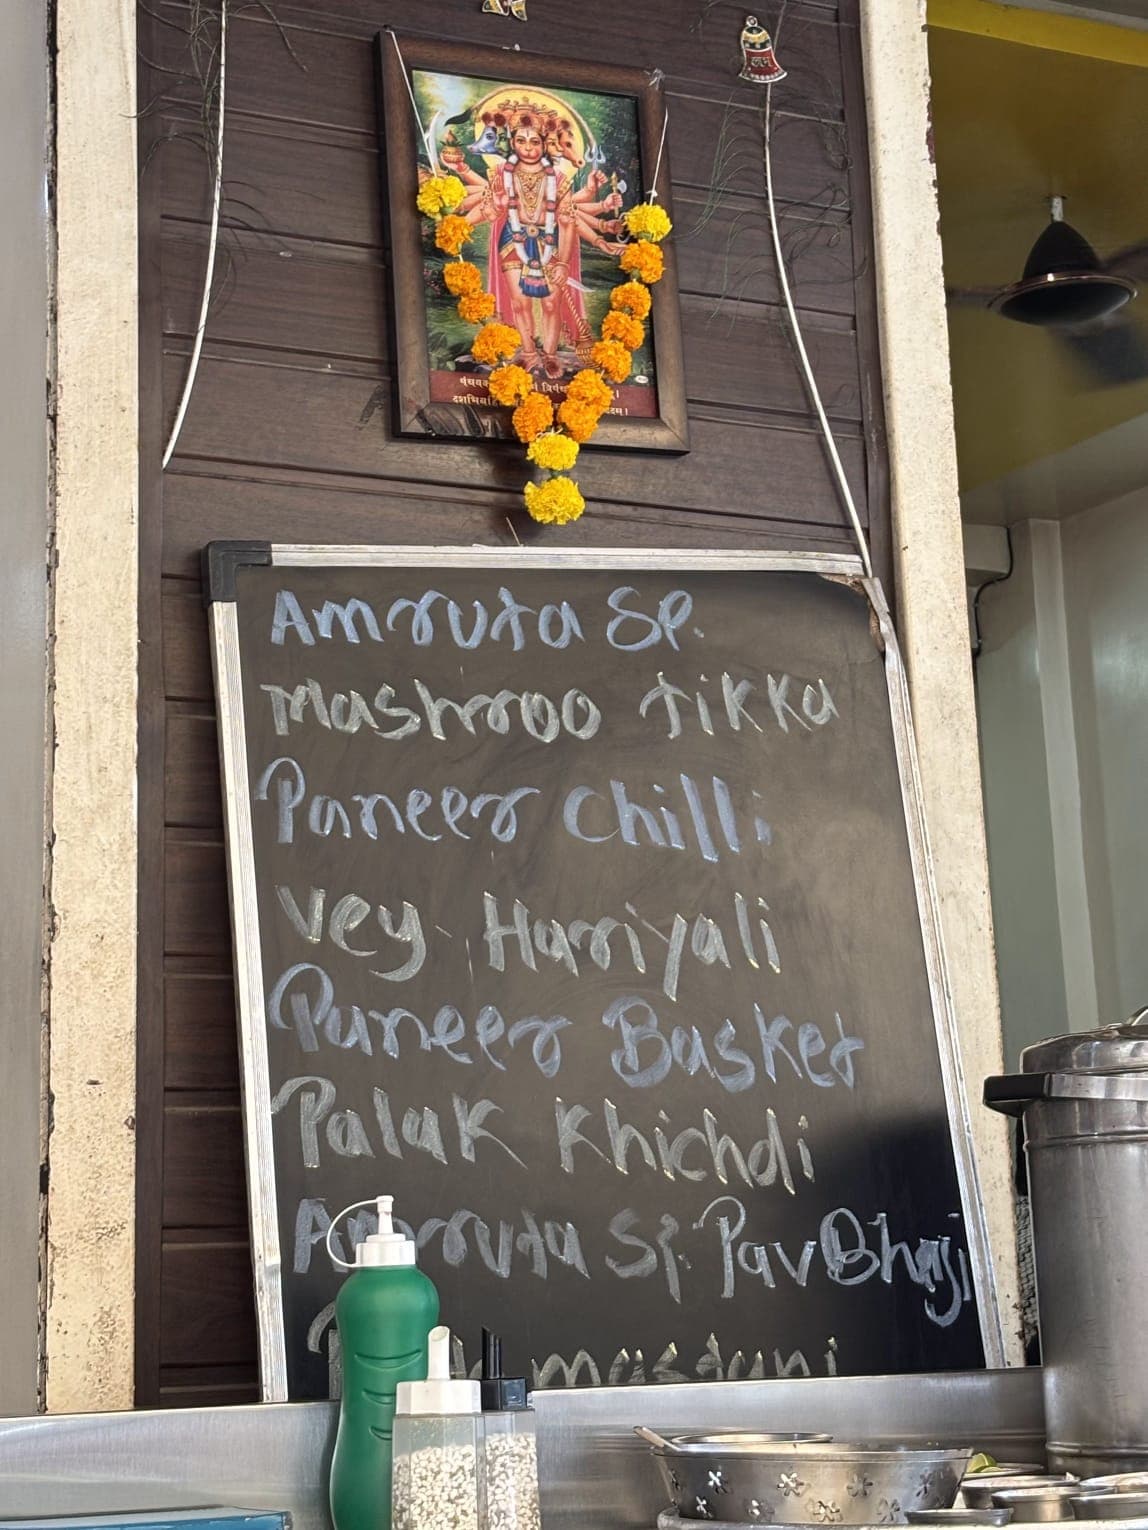 दशभि
Amruta Sp.
Mashroo Tikka
Paneer Chilli
Veg. Hariyali
Paneer Basket
Palak Khichdi
Amruta Sp. Pav Bhaji
mastani